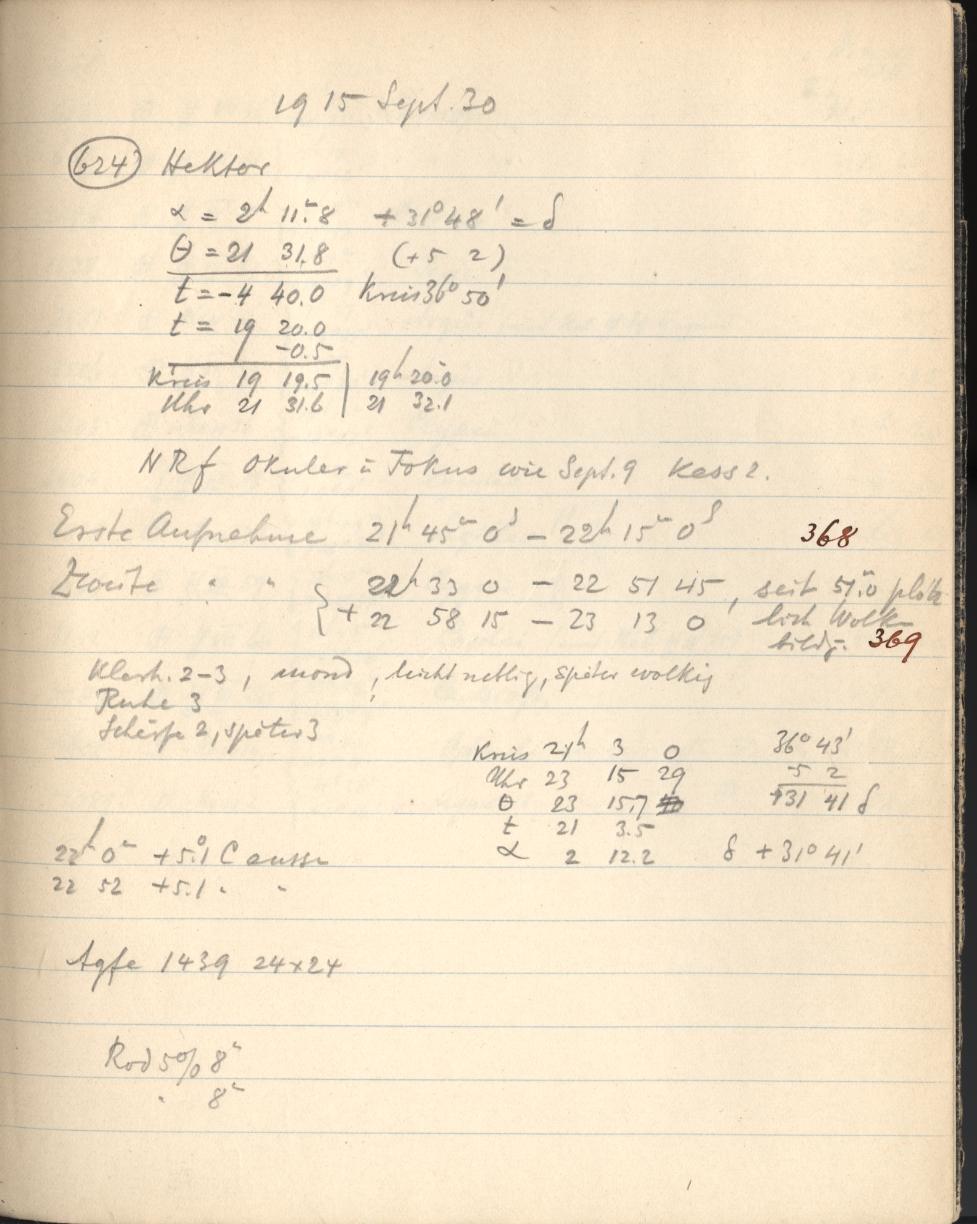 1915 Sept. 30
624 Hektor
α = 2h 11m.8 + 31° 48' = δ
θ = 21 31.8 (+5 2)
t = -4 40.0 Kreis 36° 50'
t = 19 20.0
-0.5
Kreis 19 19.5 | 19h 20.0
Uhr 21 31.6 | 21 32.1
NRf Okular u Fokus wie Sept. 9 Kass 2.
Erste Aufnahme 21h 45m 0s – 22h 15m 0s 368
Zweite " " { 22h 33 0 – 22 51 45, seit 51m.0 plötz
+ 22 58 15 – 23 13 0 lich Wolk
bildg. 369
Klarh. 2-3, mond, leicht neblig, später wolkig
Ruhe 3
Schärfe 2, später 3
Kreis 21h 3 0 36° 43'
Uhr 23 15 29 -5 2
θ 23 15.7 +31 41 δ
t 21 3.5
α 2 12.2 δ + 31° 41'
22h 0m +5°.1 C aussen
22 52 +5.1 " "
Agfa 1439 24x24
Rod 5% 8m
" 8m